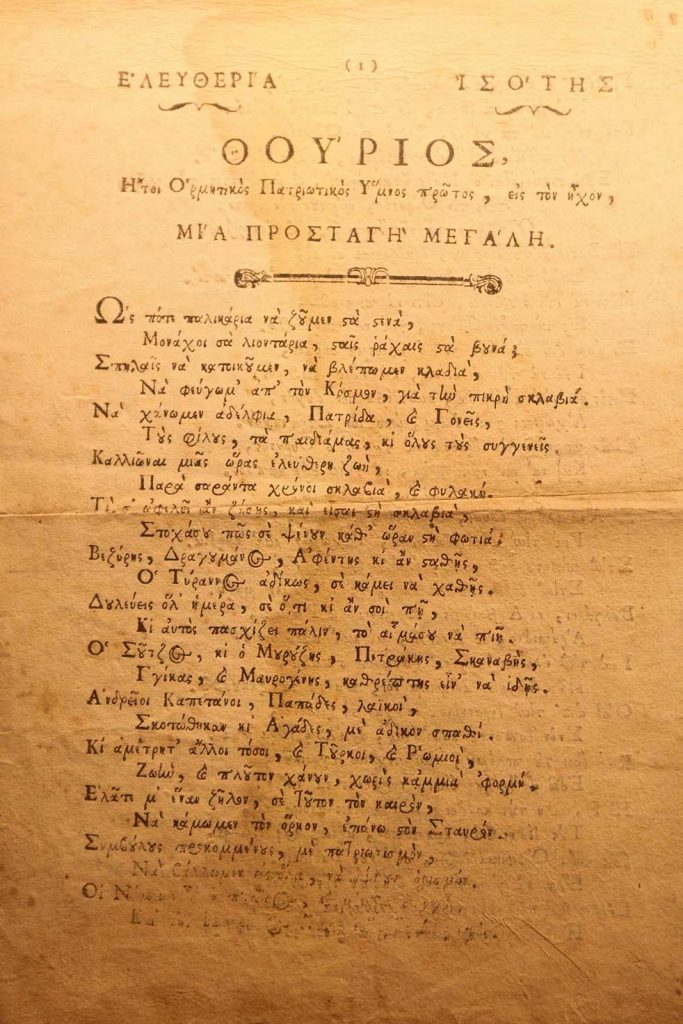 (1)
ΕʼΛΕΥΘΕΡΙΆ ἸΣΟ΄ΤΗΣ
ΘΟΥ΄ΡΙΟΣ,
Η῎τοι Ο῾ρμητικὸς Πατριωτικὸς Υ῞μνος πρῶτος, εἰς τὸν ἦχον,
ΜΙ΄Α ΠΡΟΣΤΑΓΗ` ΜΕΓΑ΄ΛΗ.
Ω῾ς πότε παλικάρια νὰ ζοῦμεν ϛὰ ϛενὰ,
Μονάχοι σὰ λιοντάρια, ϛαῖς ῥάχαις ϛὰ βουνά;
Σπηλαῖς νὰ κατοικοῦμεν, νὰ βλέπωμεν κλαδιὰ,
Νὰ φεύγωμ' ἀπ' τὸν Κόσμον, γιὰ τὴν πικρὴ σκλαβιά.
Νὰ χάνωμεν ἀδέλφια, Πατρίδα, ϗ Γονεῖς,
Τοὺς φίλους, τὰ παιδιάμας, κι ὅλους τοὺς συγγενεῖς.
Καλλιῶναι μιᾶς ὥρας ἐλεύθερη ζωὴ,
Παρὰ σαράντα χρόνοι σκλαβιὰ, ϗ φυλακή.
Τὶ σ' ὠφελεῖ ἂν ζήσῃς, καὶ εἶσαι ϛὴ σκλαβιὰ,
Στοχάσου πῶς σὲ ψένουν καθ' ὥραν ϛὴ φωτιά;
Βεζύρης, Δραγουμάνος, Α᾿φέντης κι ἂν ϛαθῇς,
Ο῾ Τύραννος ἀδίκως, σὲ κάμει νὰ χαθῇς.
Δουλεύεις ὅλ' ἡμέρα, σὲ ὅ,τι κι ἂν σοι πῇ,
Κι αὐτὸς πασχίζει πάλιν, τὸ αἷμάσου νὰ πιῇ.
Ο῾ Σοῦτζος, κι ὁ Μουρούζης, Πετράκης, Σκαναβῆς,
Γγίκας, ϗ Μαυρογένης, καθρέπτης εἶν' νὰ ἰδῇς.
Α᾿νδρεῖοι Καπετάνοι, Παπάδες, λαϊκοὶ,
Σκοτώθηκαν κι Α᾿γάδες, μὲ ἄδικον σπαθί.
Κι ἀμέτρητ' ἄλλοι τόσοι, ϗ Τοῦρκοι, ϗ Ρ῾ωμιοὶ,
Ζωὴν, ϗ πλοῦτον χάνουν, χωρὶς καμμιὰ 'φορμή.
Ε᾿λᾶτε μ' ἕναν ζῆλον, σὲ τοῦτον τὸν καιρὸν,
Νὰ κάμωμεν τὸν ὅρκον, ἐπάνω ϛὸν Σταυρόν.
Συμβούλους προκομμένους, μὲ πατριωτισμὸν,
Νὰ βάλλωμεν εἰς ὅλα, νὰ ὁρισμόν.
Οἱ